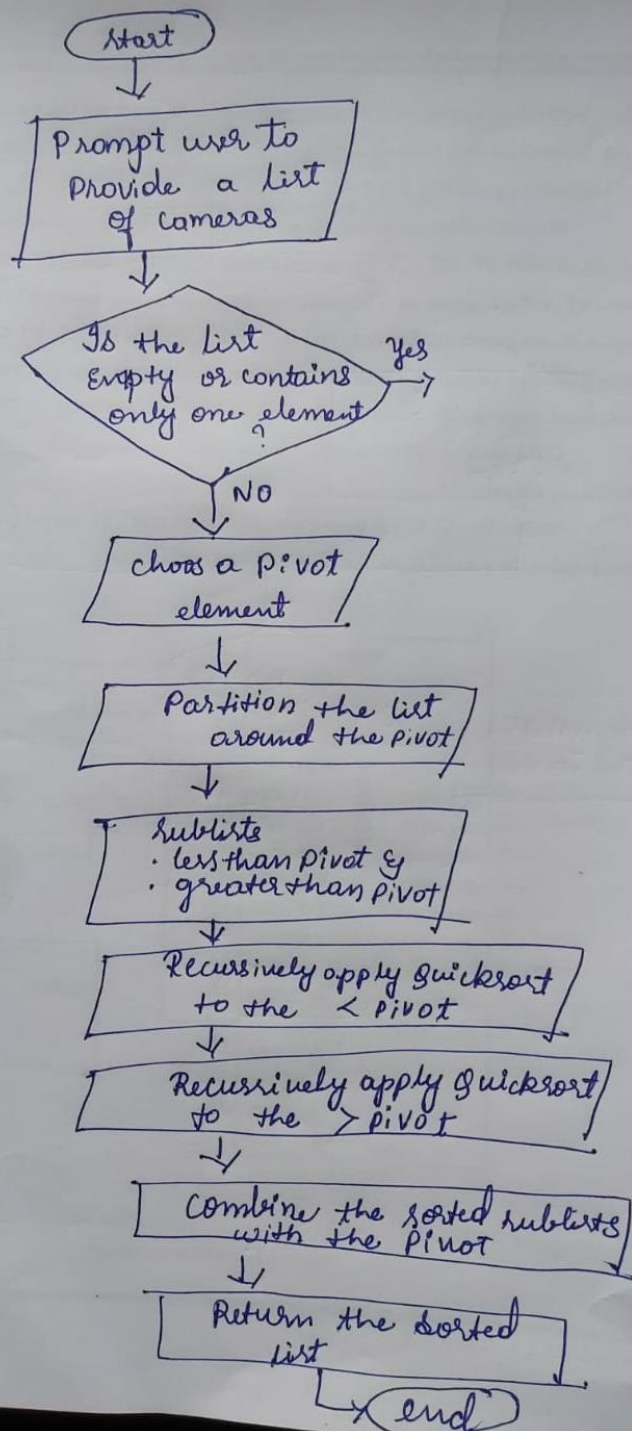 Start
Prompt user to
Provide a list
of cameras
Is the list
Empty or contains
only one element
?
Yes
NO
choos a pivot
element
Partition the list
around the pivot
sublists
· less than pivot &
· greater than pivot
Recussively apply Quicksort
to the < pivot
Recussively apply Quicksort
to the > pivot
Combine the sorted sublists
with the pivot
Return the sorted
list
end